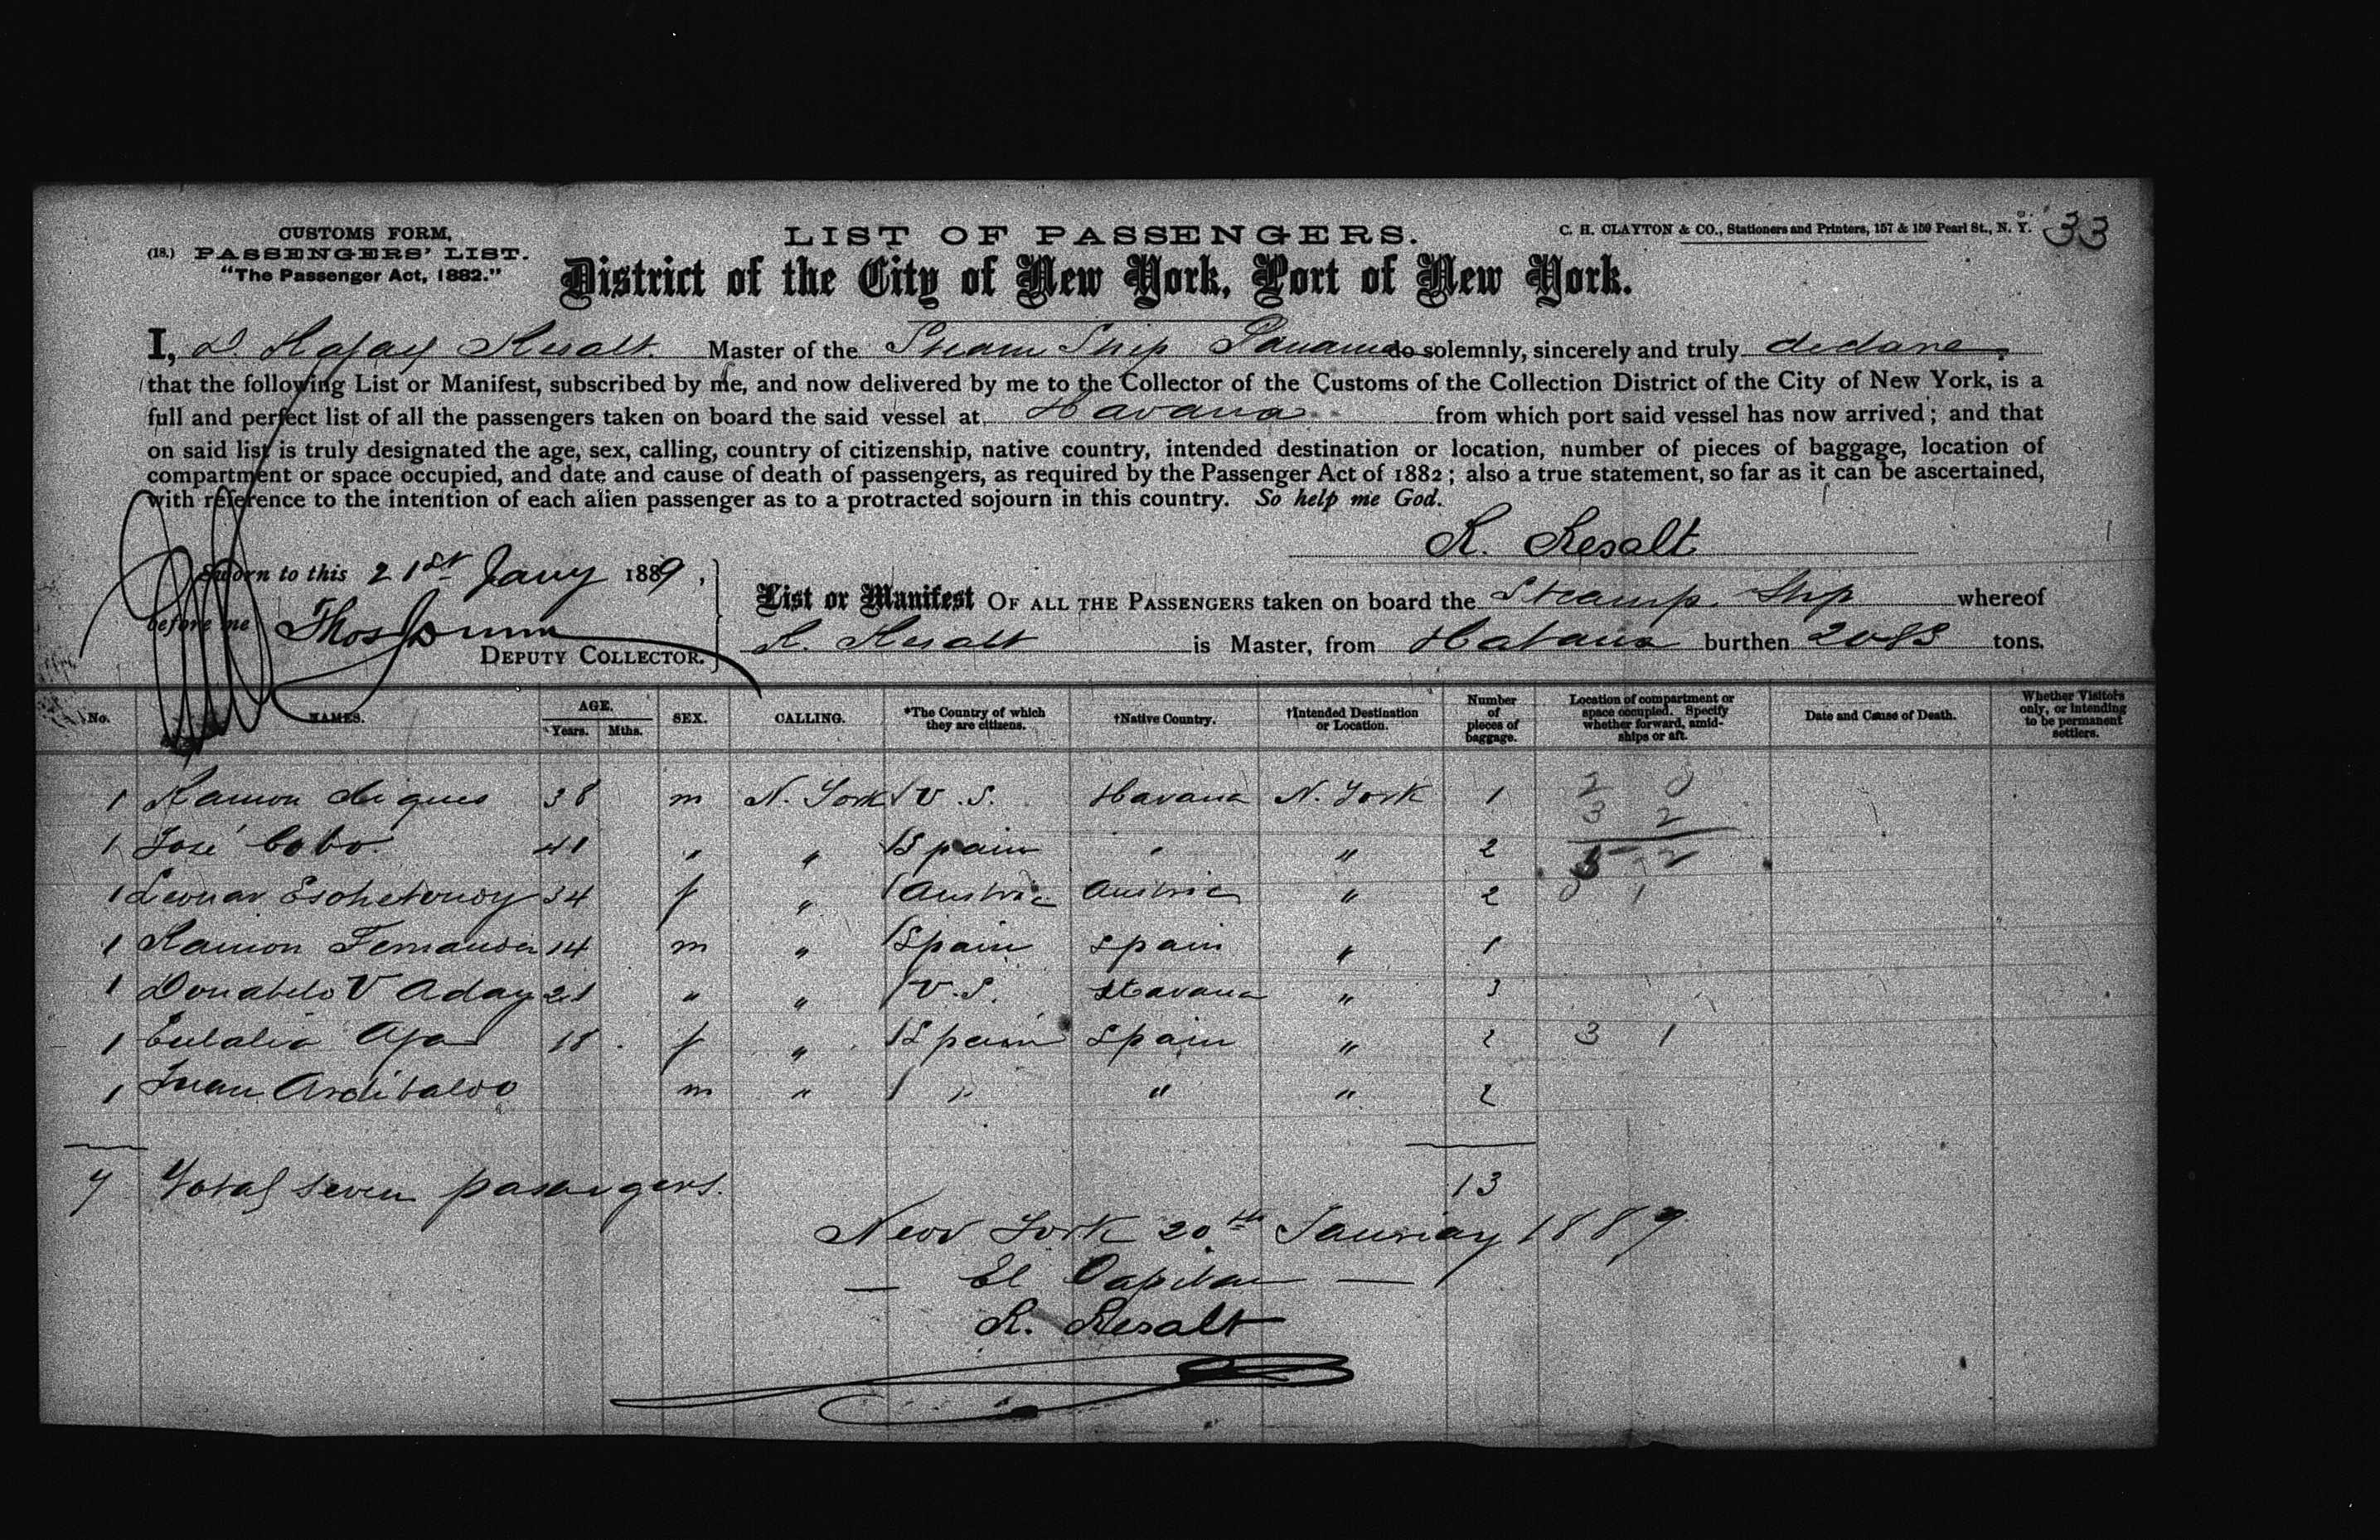 33
CUSTOMS FORM,
(18.) PASSENGERS' LIST.
"The Passenger Act, 1882."
LIST OF PASSENGERS.
C. H. CLAYTON & CO., Stationers and Printers, 157 & 159 Pearl St., N. Y.
District of the City of New York, Port of New York.
I, Resalt. Master of the Steam Ship Panama do solemnly, sincerely and truly declare
that the following List or Manifest, subscribed by me, and now delivered by me to the Collector of the Customs of the Collection District of the City of New York, is a
full and perfect list of all the passengers taken on board the said vessel at Havana from which port said vessel has now arrived; and that
on said list is truly designated the age, sex, calling, country of citizenship, native country, intended destination or location, number of pieces of baggage, location of
compartment or space occupied, and date and cause of death of passengers, as required by the Passenger Act of 1882; also a true statement, so far as it can be ascertained,
with reference to the intention of each alien passenger as to a protracted sojourn in this country. So help me God.
R. Resalt
Sworn to this 21st Jany 1889,
before me Thos
DEPUTY COLLECTOR.
List or Manifest OF ALL THE PASSENGERS taken on board the Steamp. Ship whereof
R. Resalt is Master, from Habana burthen 2085 tons.
No. NAMES. AGE. Years. Mths. SEX. CALLING. *The Country of which they are citizens. †Native Country. †Intended Destination or Location. Number of pieces of baggage. Location of compartment or space occupied. Specify whether forward, amidships or aft. Date and Cause of Death. Whether Visitors only, or intending to be permanent settlers.
1 Ramon 38 m N. York U.S. Havana N. York 1 2 0
3 2
1 José Cobo 41 " " Spain " " 2 5 2
1 Leonar 34 f " Austria Austria " 2 0 1
1 Ramon Fernandez 14 m " Spain Spain " 1
1 Donabelo V Aday 21 " " U.S. Havana " 3
1 Eulalia Aja 18 f " Spain Spain " 2 3 1
1 Juan Ardibaldo m " " " " 2
7 Total seven pasangers. 13
New York 20th January 1889
— El Capitan —
R. Resalt